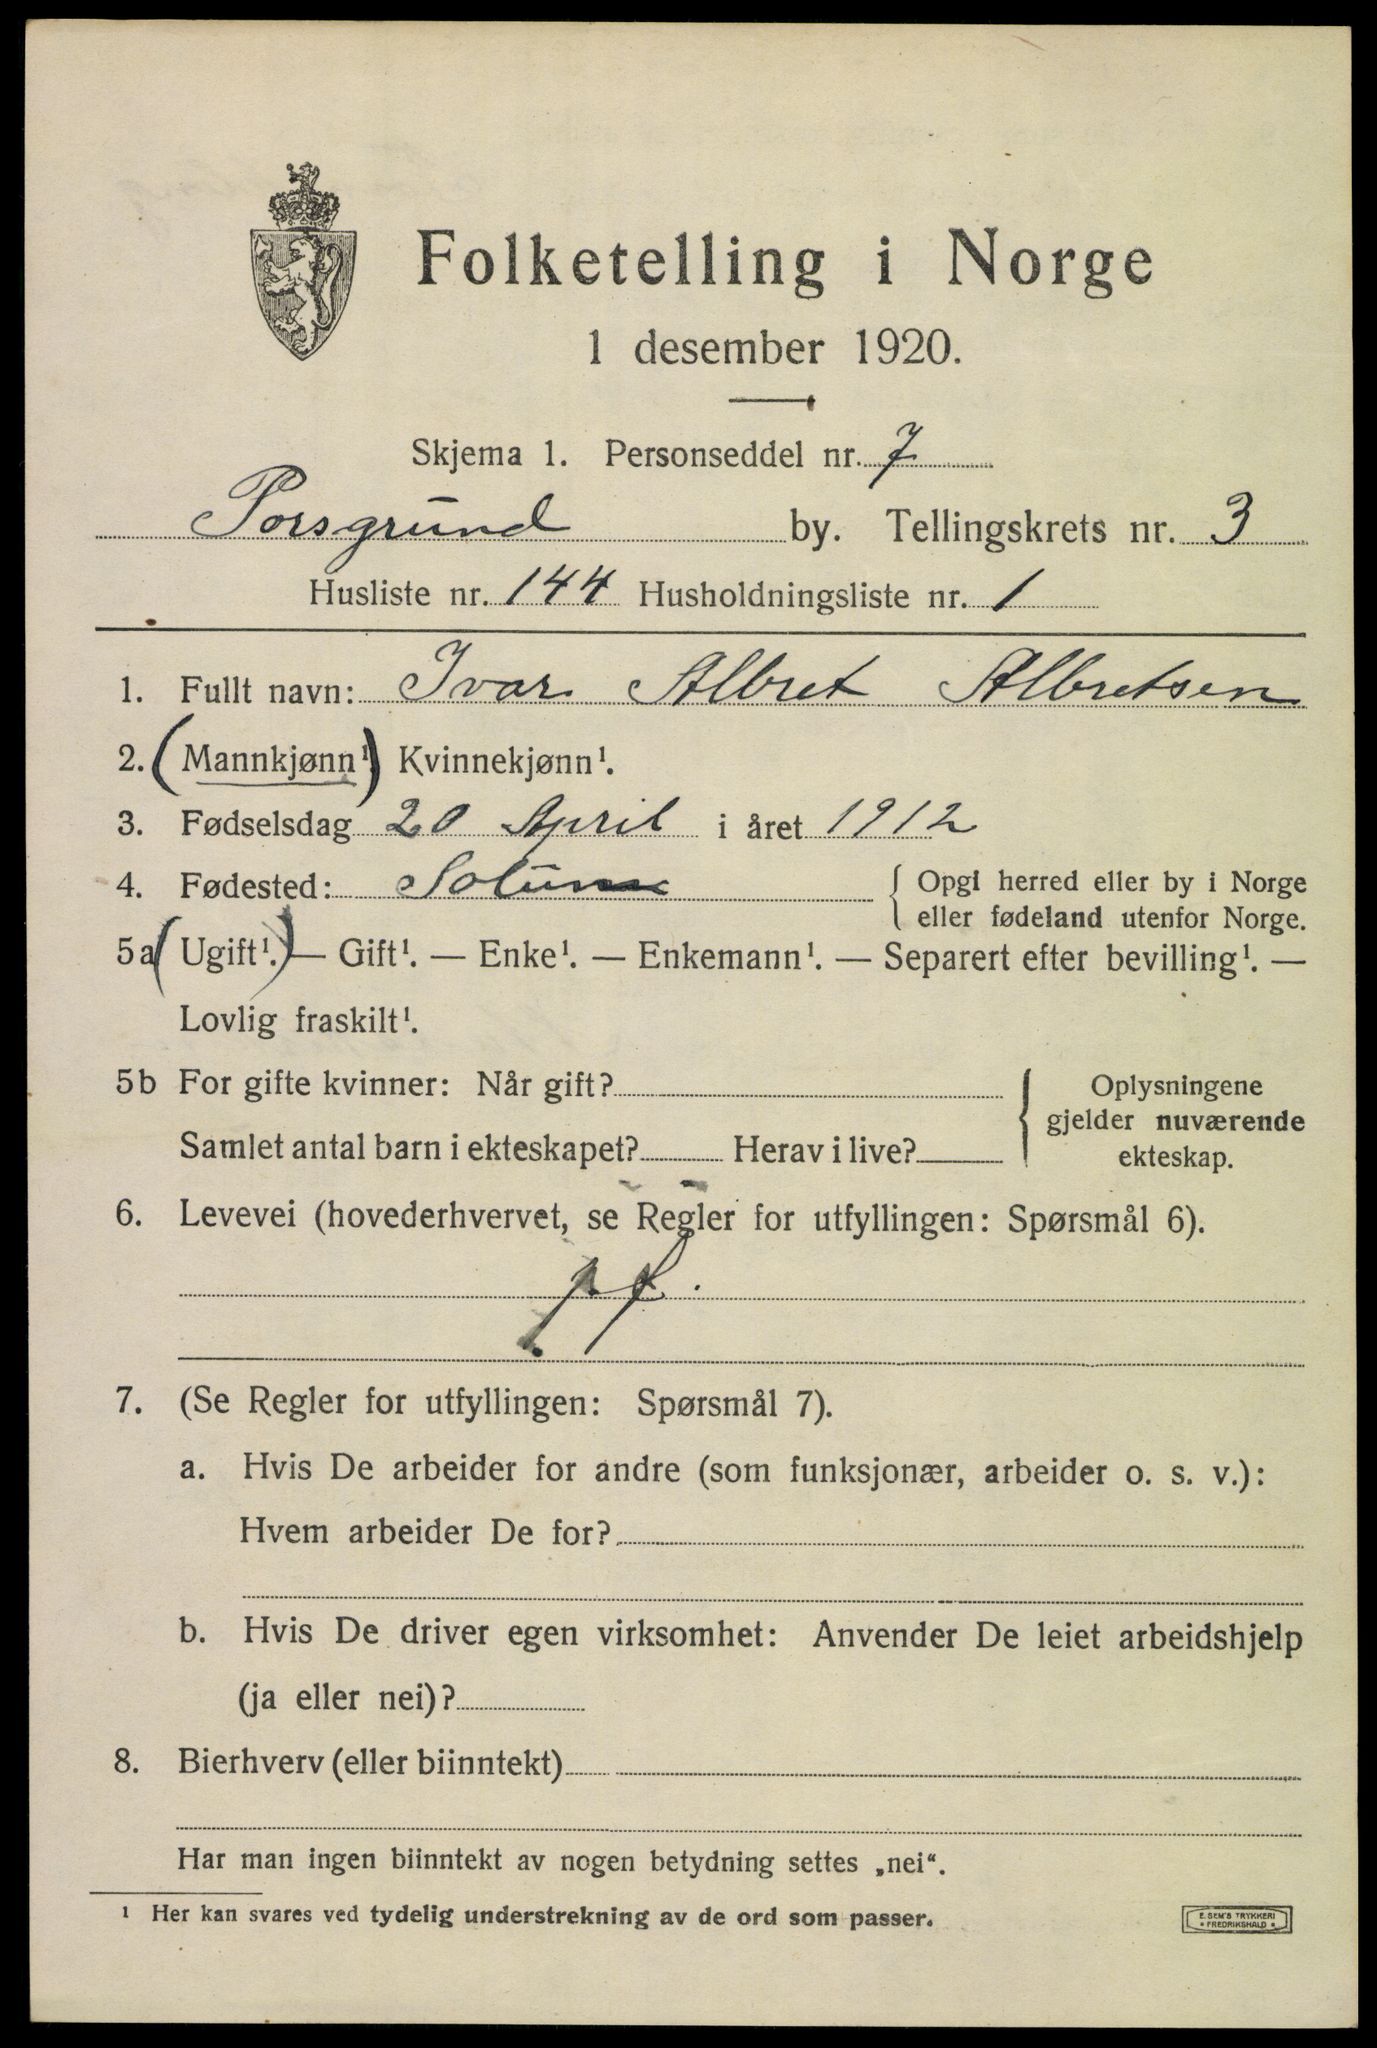 Folketelling i Norge
1 desember 1920.
Skjema 1. Personseddel nr. 7
Porsgrund by. Tellingskrets nr. 3
Husliste nr. 144 Husholdningsliste nr. 1
1. Fullt navn: Ivar Albret Albretsen
2. (Mannkjønn¹) Kvinnekjønn¹.
3. Fødselsdag 20 April i året 1912
4. Fødested: Solum { Opgi herred eller by i Norge
eller fødeland utenfor Norge.
5a (Ugift¹.) — Gift¹. — Enke¹. — Enkemann¹. — Separert efter bevilling¹. —
Lovlig fraskilt¹.
5b For gifte kvinner: Når gift? { Oplysningene
gjelder nuværende
Samlet antal barn i ekteskapet? Herav i live? ekteskap.
6. Levevei (hovederhvervet, se Regler for utfyllingen: Spørsmål 6).
7. (Se Regler for utfyllingen: Spørsmål 7).
a. Hvis De arbeider for andre (som funksjonær, arbeider o. s. v.):
Hvem arbeider De for?
b. Hvis De driver egen virksomhet: Anvender De leiet arbeidshjelp
(ja eller nei)?
8. Bierhverv (eller biinntekt)
Har man ingen biinntekt av nogen betydning settes „nei“.
¹ Her kan svares ved tydelig understrekning av de ord som passer.
E. SEM'S TRYKKERI
FREDRIKSHALD